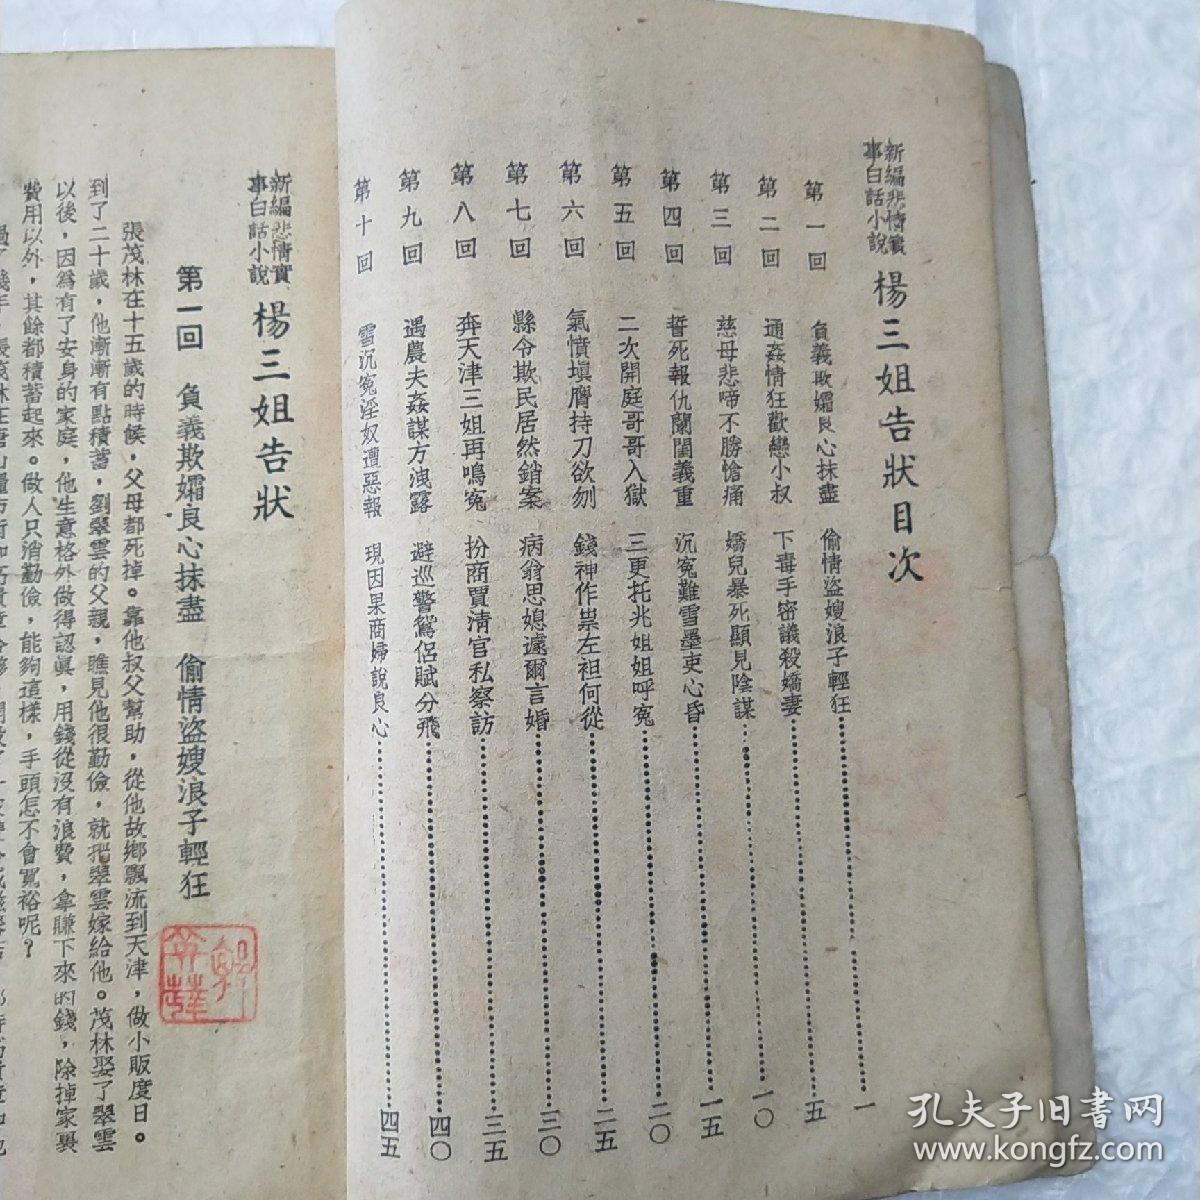 新編悲情實事白話小說 楊三姐告狀目次
第一回 負義欺孀良心抹盡 偷情盜嫂浪子輕狂 一
第二回 通姦情狂歡戀小叔 下毒手密議殺嬌妻 五
第三回 慈母悲啼不勝愴痛 嬌兒暴死顯見陰謀 一〇
第四回 誓死報仇蘭閨義重 沉寃難雪墨吏心昏 一五
第五回 二次開庭哥哥入獄 三更托兆姐姐呼寃 二〇
第六回 氣憤塡膺持刀欲刎 錢神作祟左袒何從 二五
第七回 縣令欺民居然銷案 病翁思媳遽爾言婚 三〇
第八回 奔天津三姐再鳴寃 扮商賈淸官私察訪 三五
第九回 遇農夫姦謀方洩露 避巡警鴛侶賦分飛 四〇
第十回 雪沉寃淫奴遭惡報 現因果商婦說良心 四五
新編悲情實事白話小說 楊三姐告狀
第一回 負義欺孀良心抹盡 偷情盜嫂浪子輕狂
張茂林在十五歲的時候，父母都死掉。靠他叔父幫助，從他故鄉飄流到天津，做小販度日。
到了二十歲，他漸漸有點積蓄，劉翠雲的父親，瞧見他很勤儉，就把翠雲嫁給他。茂林娶了翠雲
以後，因爲有了安身的家庭，他生意格外做得認眞，用錢從沒有浪費，拿賺下來的錢，除掉家裏
費用以外，其餘都積蓄起來。做人只消勤儉，能夠這樣，手頭怎不會寬裕呢？
孔夫子旧書网
www.kongfz.com